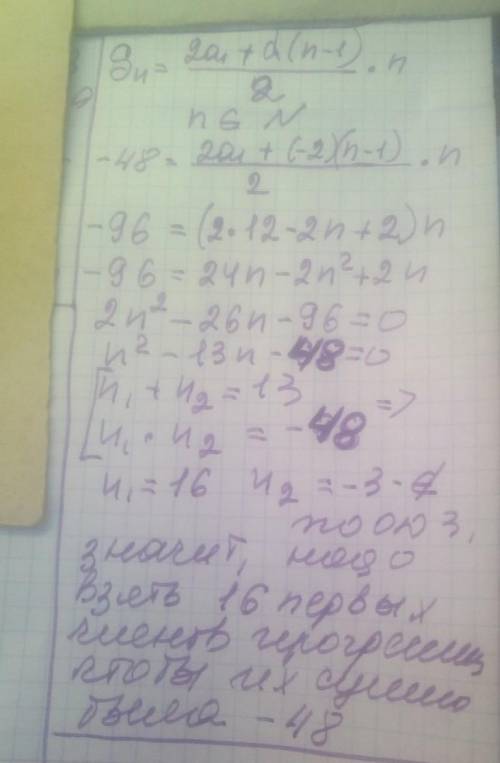 Sn = (2a₁ + d(n-1))/2 · n
n ∈ N
-48 = (2a₁ + (-2)(n-1))/2 · n
-96 = (2·12-2n+2)n
-96 = 24n-2n²+2n
2n² - 26n - 96 = 0
n² - 13n - 48 = 0
[n₁ + n₂ = 13 =>
[n₁ · n₂ = -48
n₁ = 16 n₂ = -3 -
по ОДЗ,
значит, надо
взять 16 первых
членов прогрессии
чтобы их сумма
была -48